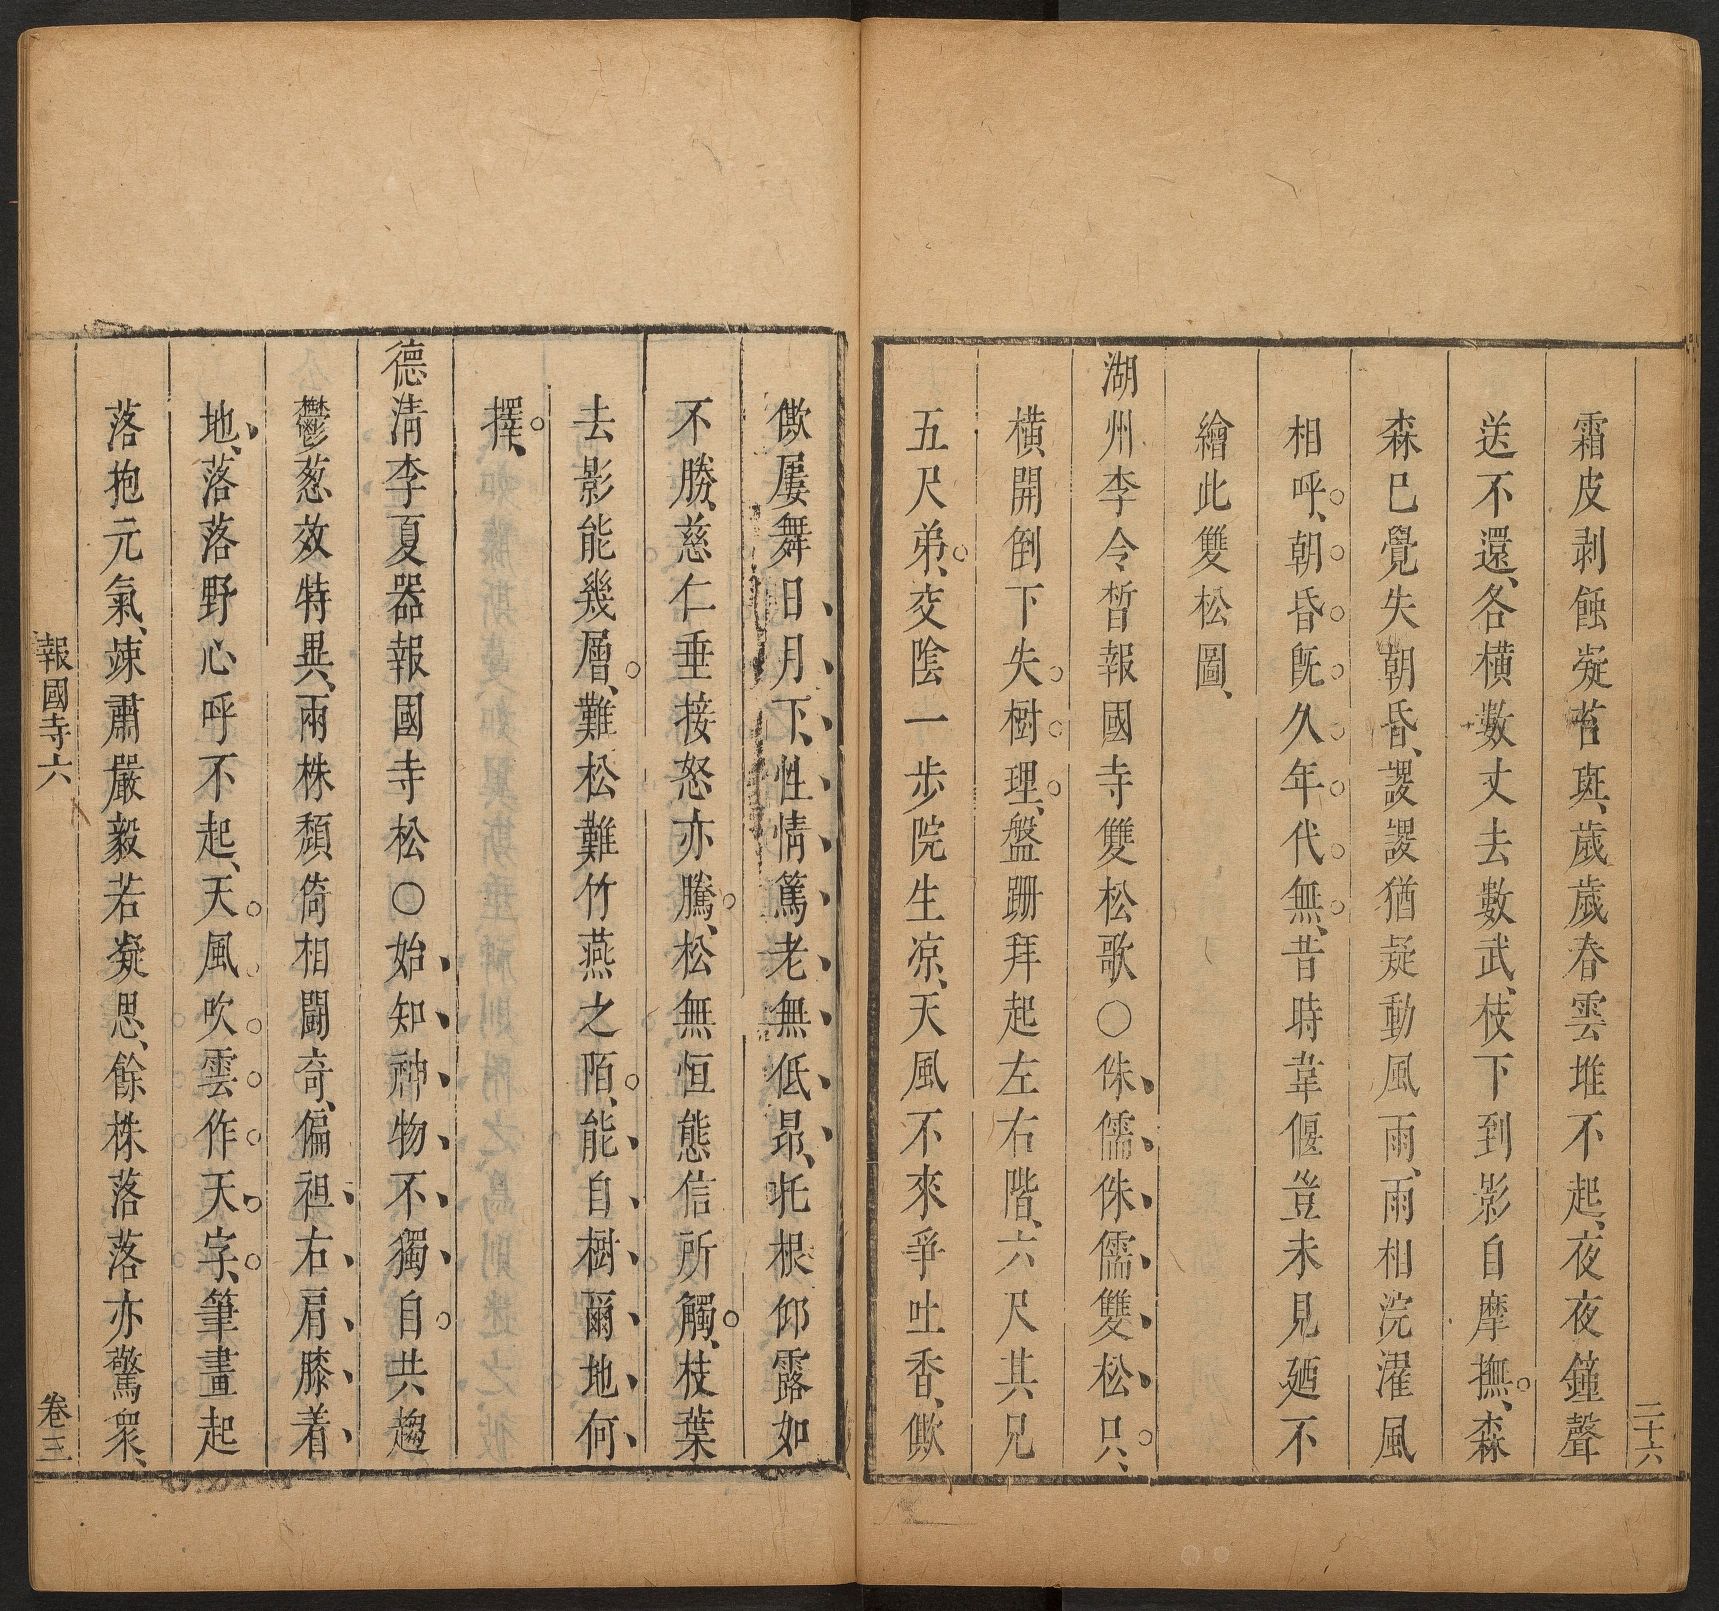 二十六
霜皮剥蝕凝苔斑、歲歲春雲堆不起、夜夜鐘聲
送不還、各横數丈去數武、枝下到影自摩撫、森
森巳覺失朝昏、謖謖猶疑動風雨、雨相浣濯風
相呼、朝昏旣久年代無、昔時韋偃豈未見廼不
繪此雙松圖、
湖州李令晳報國寺雙松歌○侏儒侏儒雙松只、
横開倒下失樹理、盤跚拜起左右階、六尺其兄
五尺弟、交隂一步院生凉、天風不來爭吐香、僛
僛屢舞日月下、性情篤老無低昻、托根仰露如
不勝、慈仁垂接怒亦騰、松無恒態信所觸、枝葉
去影能幾層、難松難竹燕之陌、能自樹爾地何
擇、
德淸李夏器報國寺松○始知神物不獨自共趨
鬱葱效特異、兩株頽倚相鬪奇、偏袒右肩膝着
地、落落野心呼不起、天風吹雲作天字、筆畫起
落抱元氣、竦肅嚴毅若凝思、餘株落落亦驚衆、
報國寺六
卷三